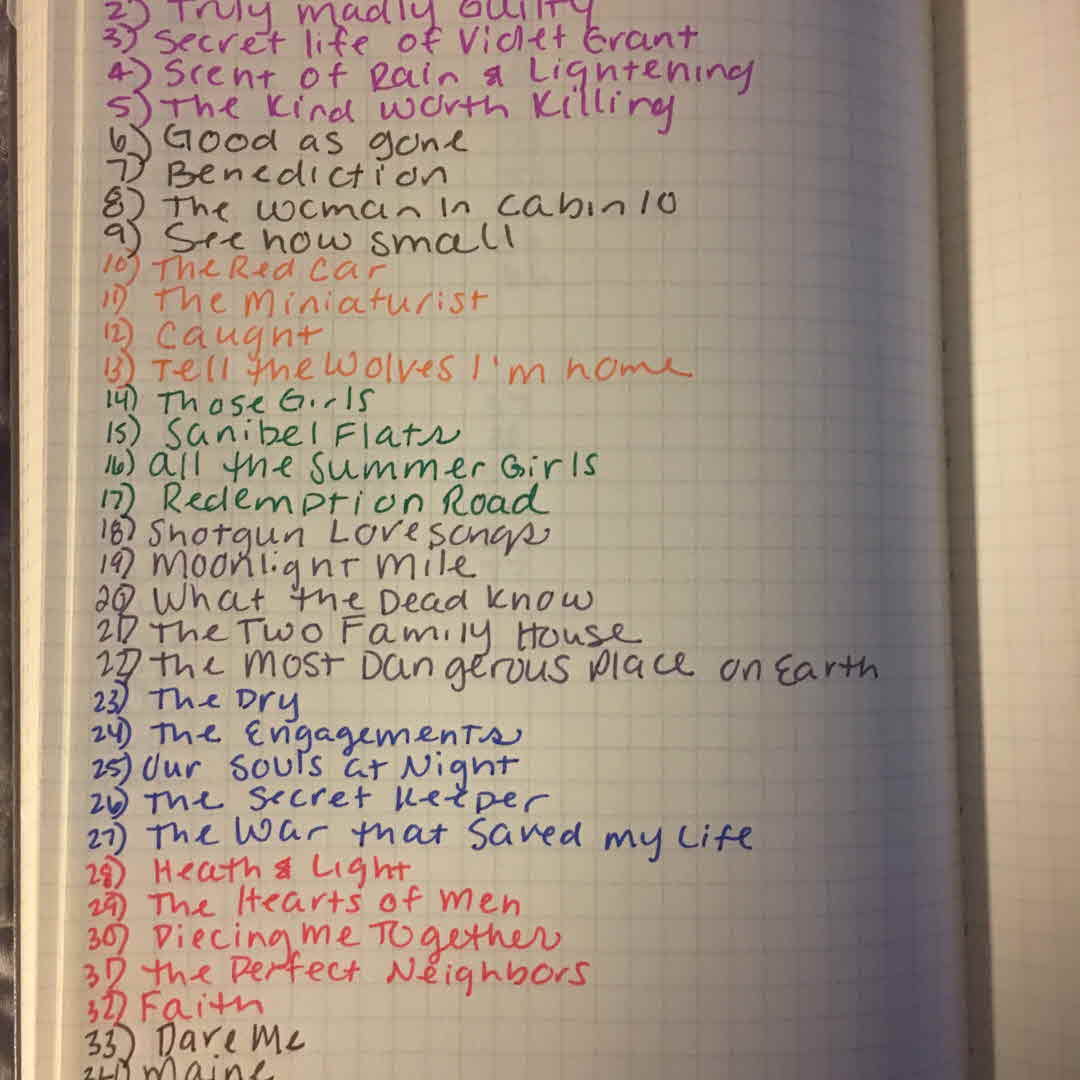 2) Truly madly Guilty
3) Secret life of Violet Grant
4) Scent of Rain & Lightening
5) The Kind Worth Killing
6) Good as gone
7) Benediction
8) The woman in cabin 10
9) See how small
10) The Red Car
11) The Miniaturist
12) Caught
13) Tell the Wolves I'm home
14) Those Girls
15) Sanibel Flats
16) all the Summer Girls
17) Redemption Road
18) Shotgun Lovesongs
19) Moonlight Mile
20) What the Dead Know
21) The Two Family House
22) The Most Dangerous Place on Earth
23) The Dry
24) The Engagements
25) Our Souls at Night
26) The Secret Keeper
27) The War that Saved my Life
28) Heath & Light
29) The Hearts of Men
30) Piecing Me Together
31) The Perfect Neighbors
32) Faith
33) Dare Me
34) Maine